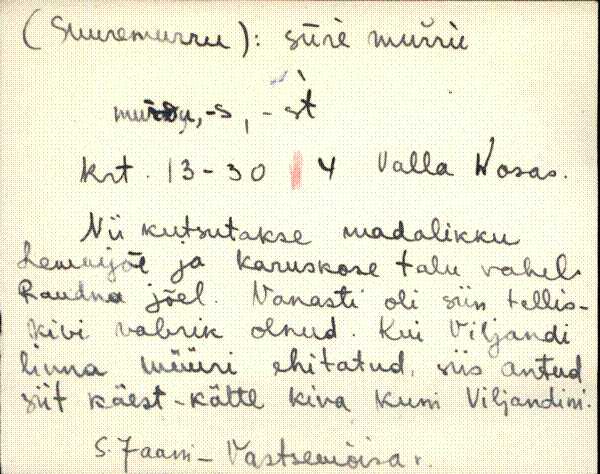 (Suuremurru): sūrè murrù
-s, -st
krt. 13-30 4 Valla Kosas.
Nii kutsutakse madalikku
Lemmjõe ja Karuskose talu vahel
Raudna jõel. Vanasti oli siin tellis-
kivi vabrik olnud. Kui Viljandi
linna müüri ehitatud, siis antud
siit käest-kätte kiva kuni Viljandini.
S. Jaani - Vastsemõisa v.